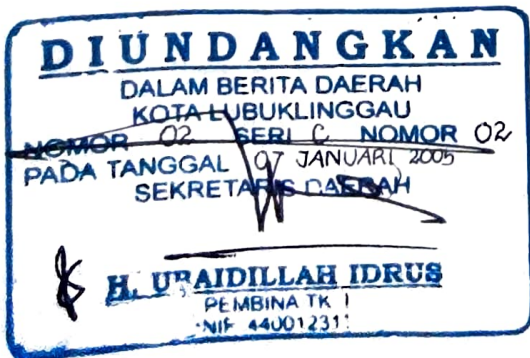 DIUNDANGKAN
DALAM BERITA DAERAH
KOTA LUBUKLINGGAU
NOMOR 02 SERI C NOMOR 02
PADA TANGGAL 07 JANUARI 2005
SEKRETARIS DAERAH
H. UBAIDILLAH IDRUS
PEMBINA TK I
NIP 44001231